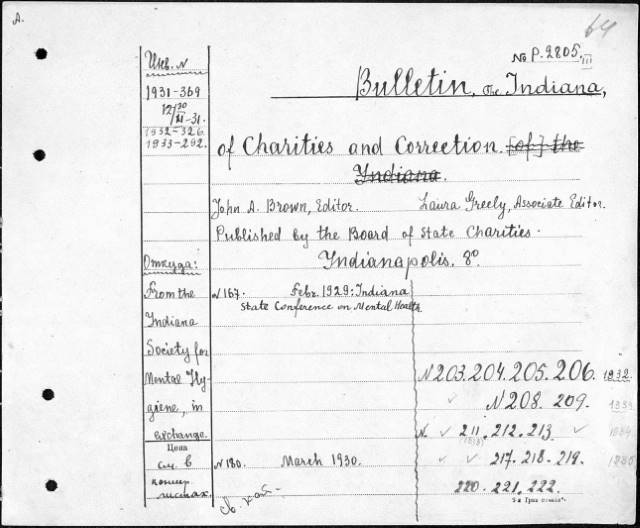 A.
64
No P.2805, III
Bulletin, The Indiana,
of Charities and Correction. [of] the
Indiana.
John A. Brown, Editor. Laura Greely, Associate Editor.
Published by the Board of State Charities.
Indianapolis. 8º.
Инв. N
1931-369
12/XI-31.
1932-326.
1933-292.
Откуда:
From the
Indiana
Society for
Mental Hy-
giene, in
exchange.
Цена
см. в
листах.
N 167. Febr. 1929: Indiana
State Conference on Mental Health
N 180. March 1930.
N 203. 204. 205. 206. 1932
N 208. 209.
N. 211. 212. 213
217. 218. 219.
220. 221. 222.